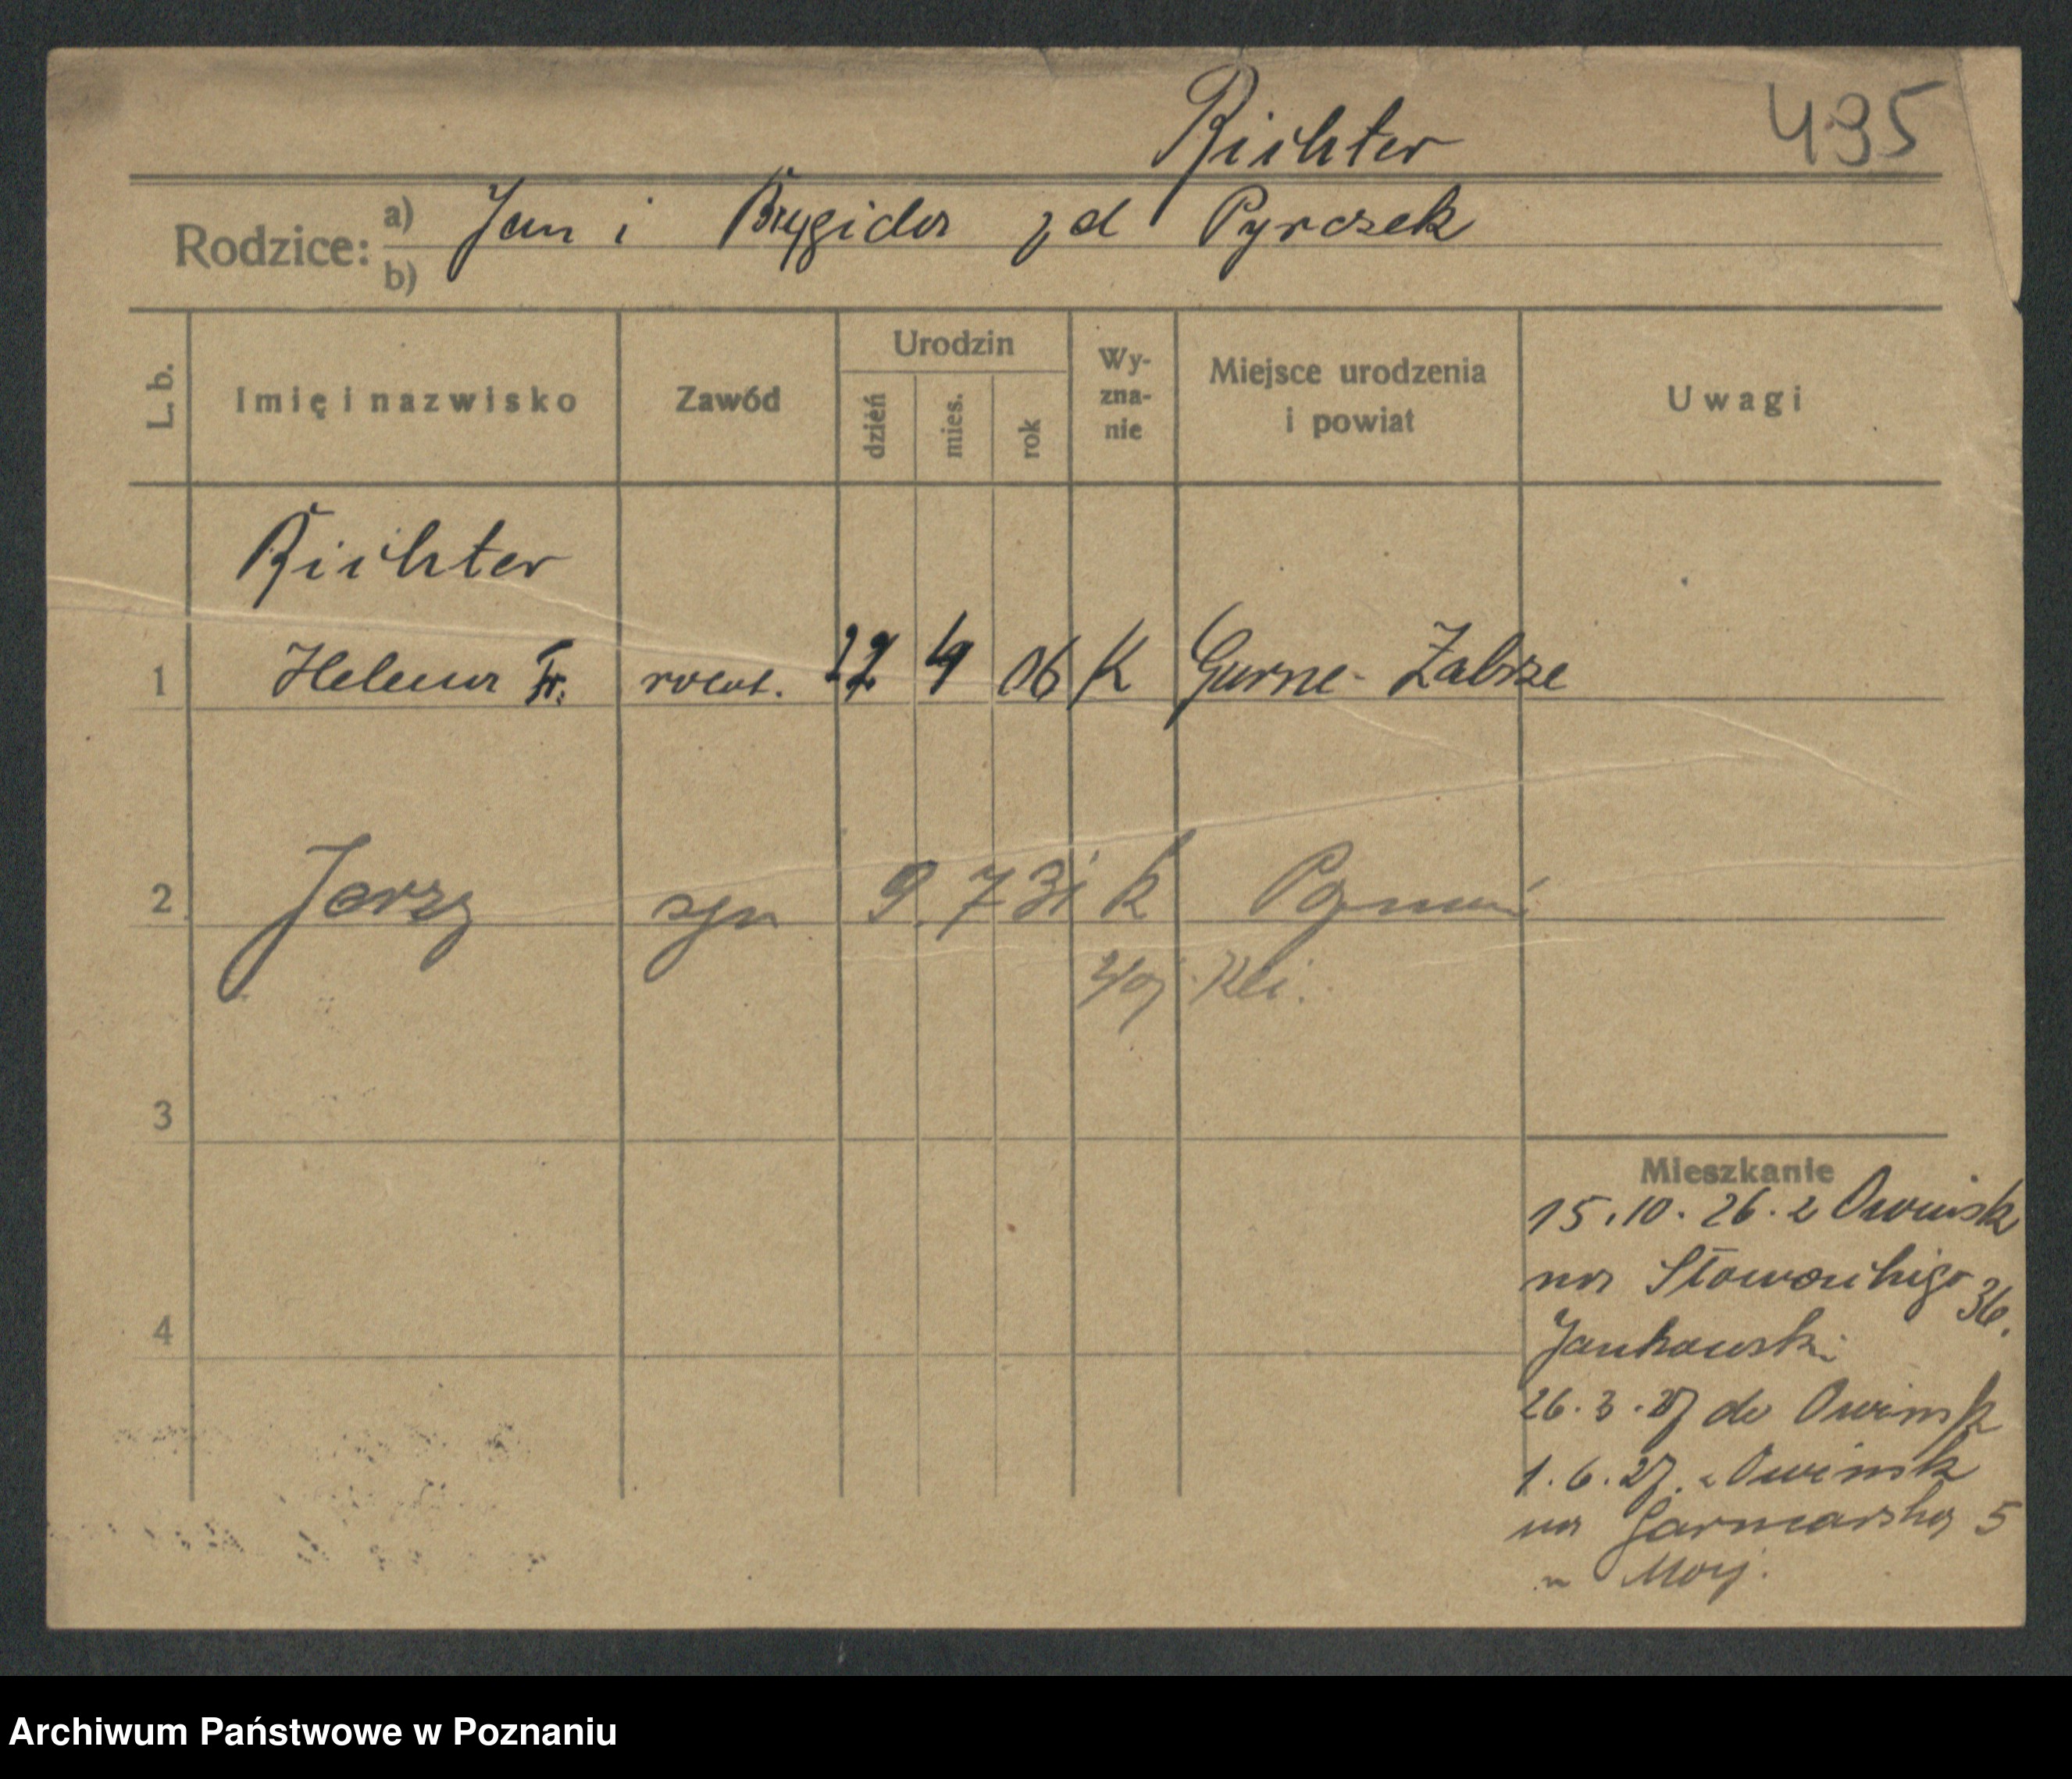 Richter 495
Rodzice: a) Jan i Brygida zd Pyrczek
b)
L. b. Imię i nazwisko Zawód Urodzin dzień mies. rok Wy-zna-nie Miejsce urodzenia i powiat Uwagi
Richter
1 Helena Fr. robot. 22 4 06 K Gurne-Zabrze
2 Jerzy syn 9. 7 31 k Poznań
3
Mieszkanie
15.10.26. z Owińsk
na Słowackiego 36.
4
Jankowski
26.3.27 do Owińsk
1.6.27. z Owińsk
na Jarmarską 5
u
Archiwum Państwowe w Poznaniu